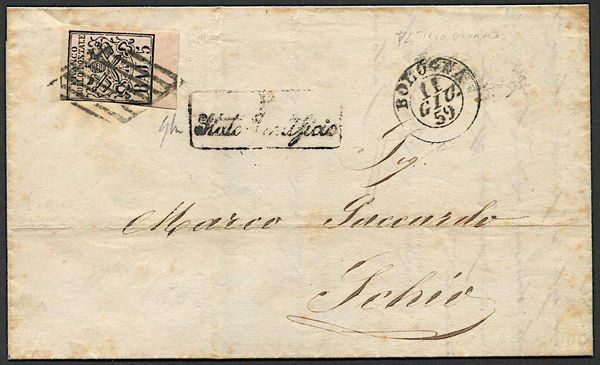 FRANCO
BOLLO POSTALE
BAJ 5
BOLOGNA
11
GIU
59
Stato Pontificio
Sig.
Marco Saccardo
Schio